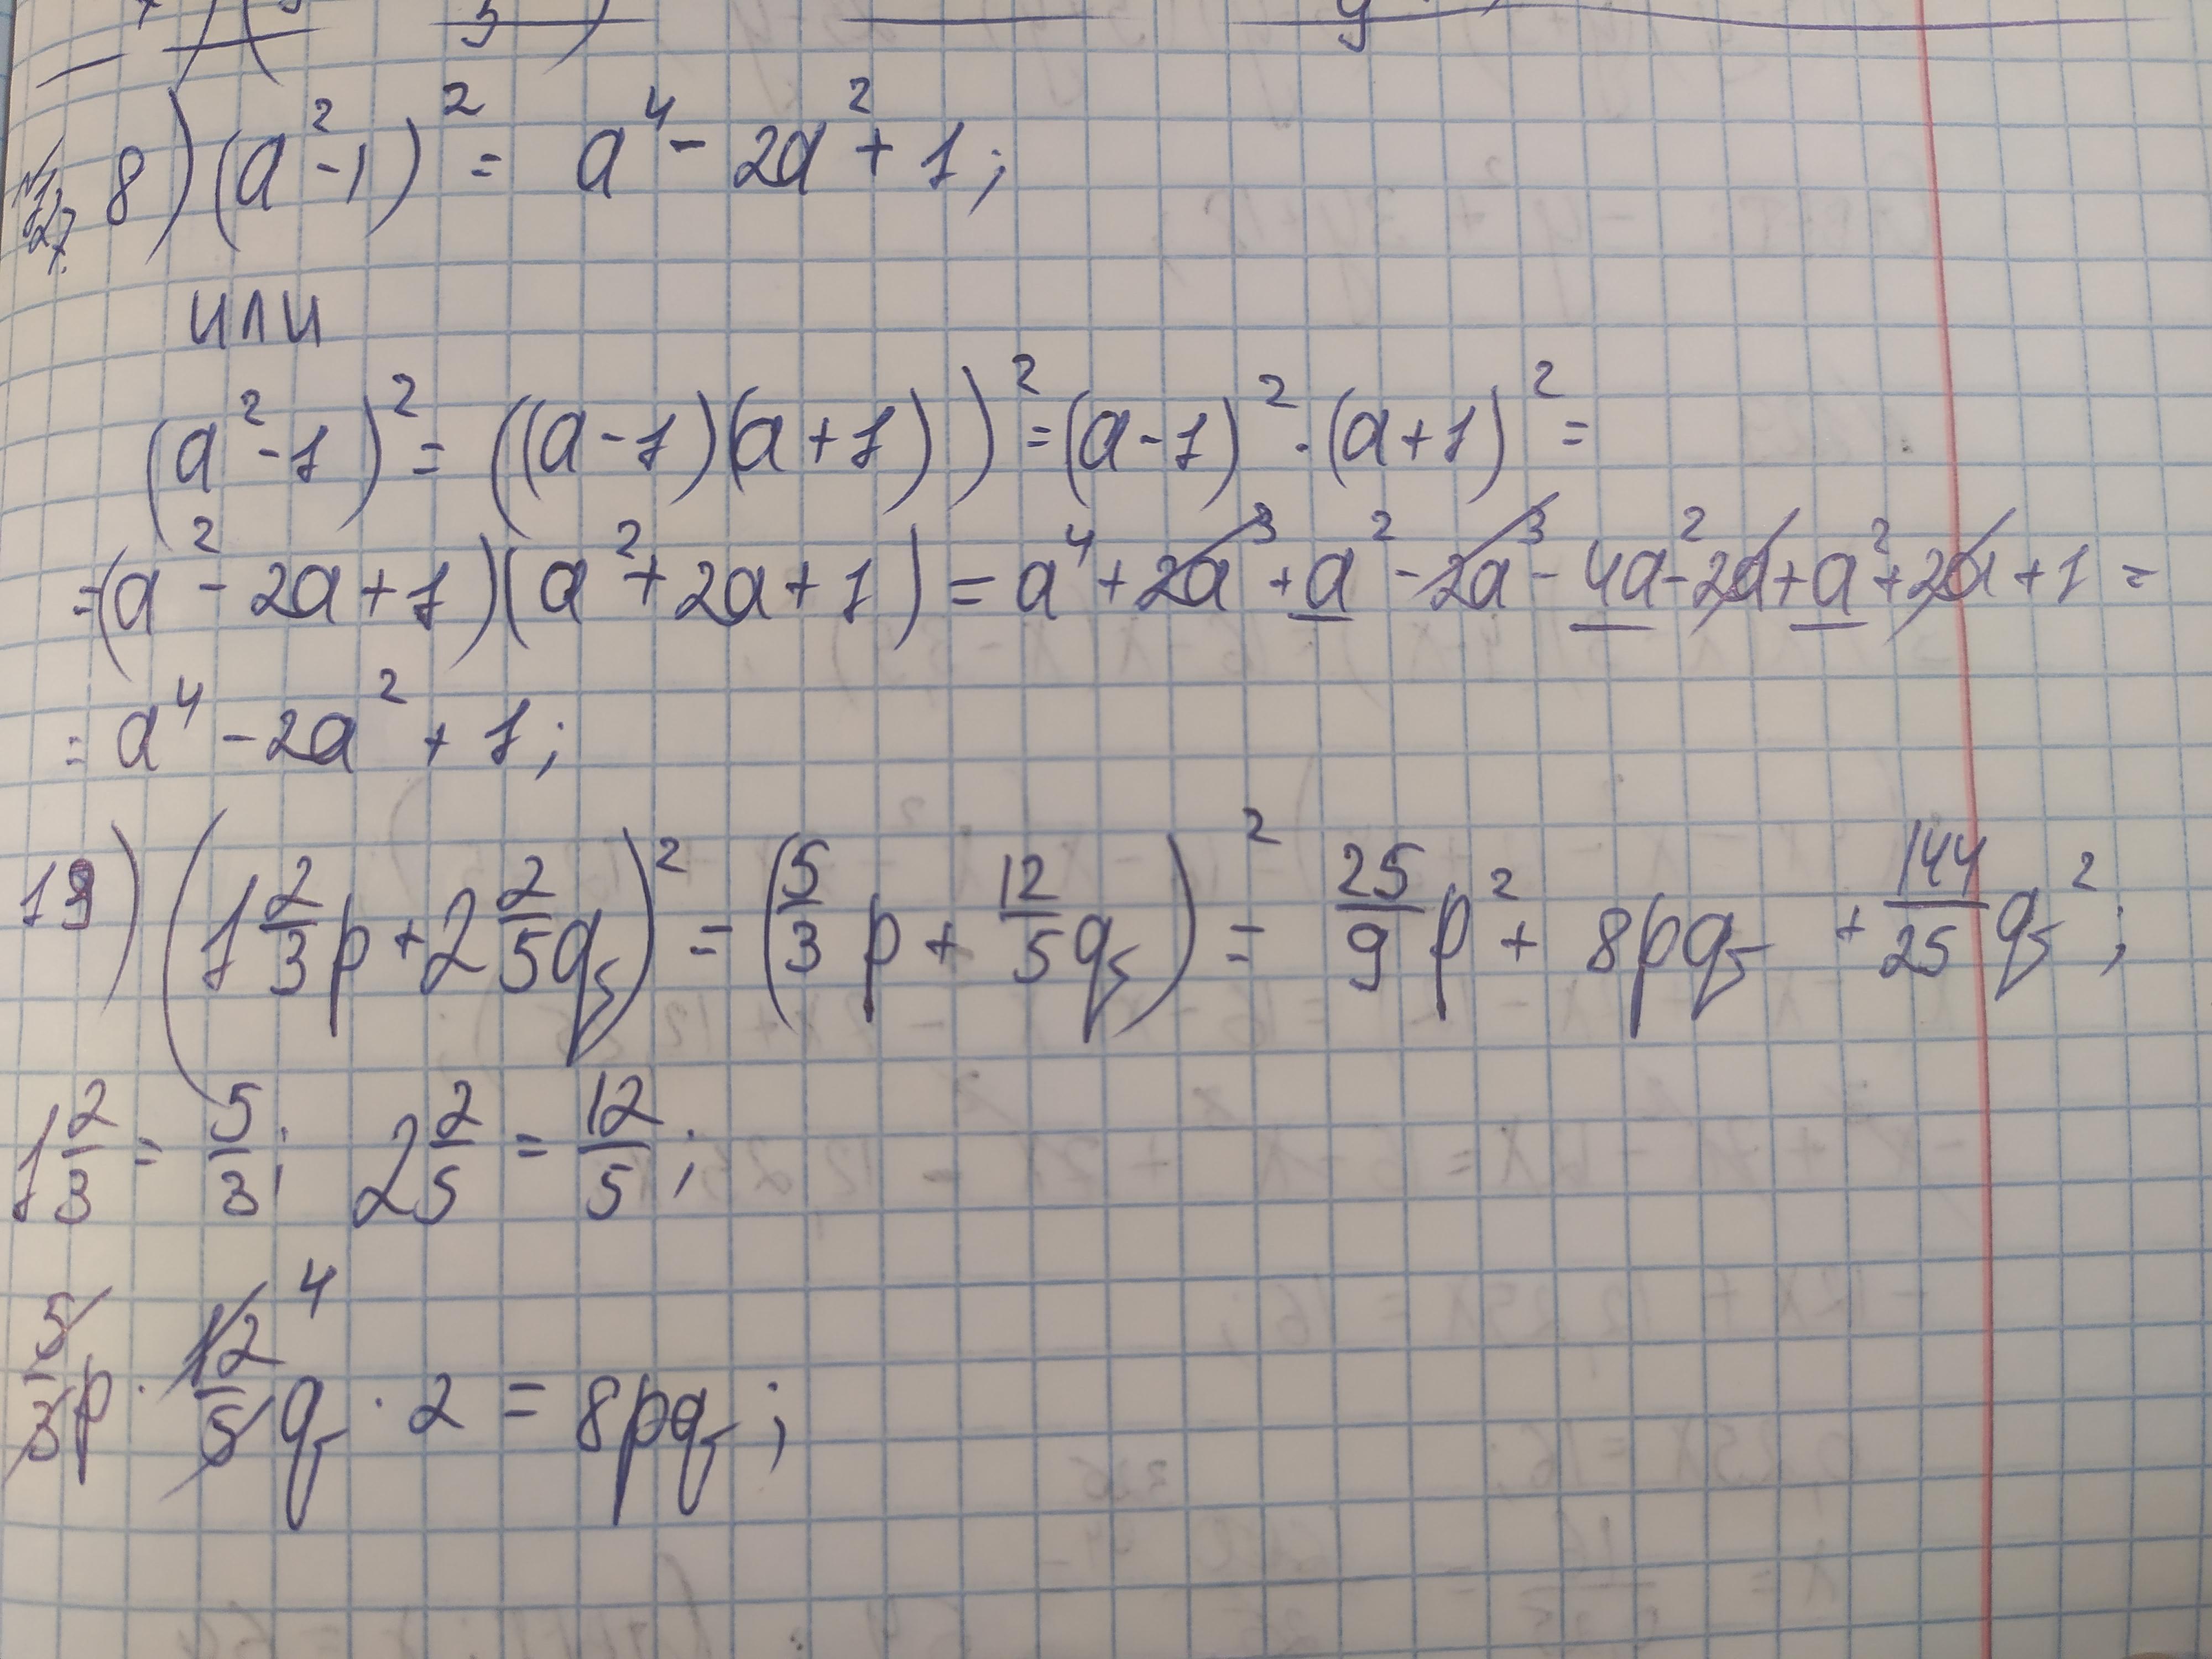 8) (a²-1)² = a⁴ - 2a² + 1;
или
(a²-1)² = ((a-1)(a+1))² = (a-1)² · (a+1)² =
= (a² - 2a + 1)(a² + 2a + 1) = a⁴ + 2a³ + a² - 2a³ - 4a² - 2a + a² + 2a + 1 =
= a⁴ - 2a² + 1;
19) (1 2/3 p + 2 2/5 q)² = (5/3 p + 12/5 q)² = 25/9 p² + 8pq + 144/25 q²;
1 2/3 = 5/3; 2 2/5 = 12/5;
5/3 p · 12/5 q · 2 = 8pq;
4